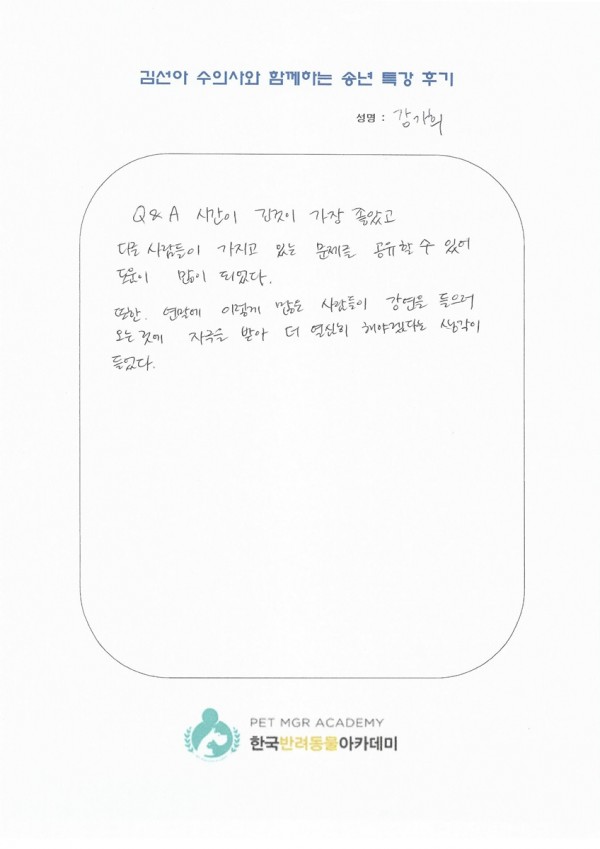 김선아 수의사와 함께하는 송년 특강 후기
성명 : 강가희
Q&A 시간이 긴것이 가장 좋았고
다른 사람들이 가지고 있는 문제를 공유할 수 있어
도움이 많이 되었다.
또한. 연말에 이렇게 많은 사람들이 강연을 들으러
오는 것에 자극을 받아 더 열심히 해야겠다는 생각이
들었다.
PET MGR ACADEMY
한국반려동물아카데미